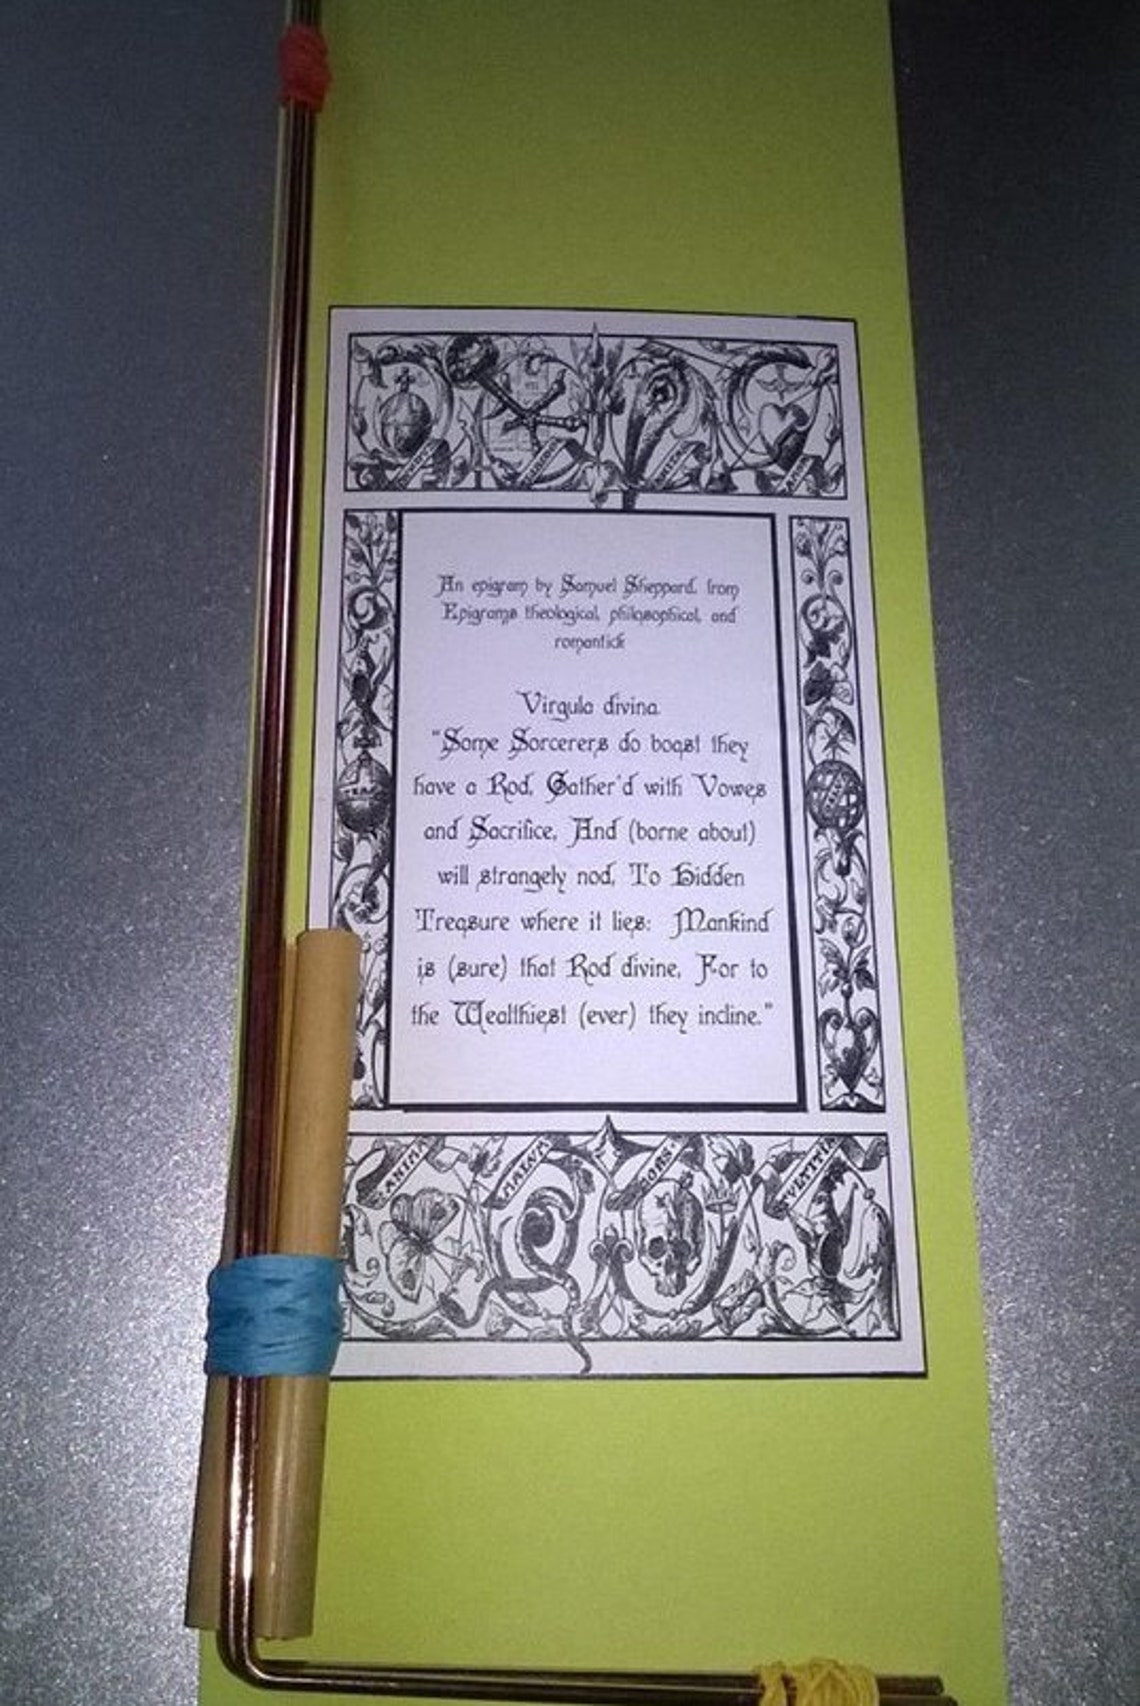 An epigram by Samuel Sheppard, from
Epigrams theological, philosophical, and
romantick
Virgula divina.
"Some Sorcerers do boast they
have a Rod, Gather'd with Vowes
and Sacrifice, And (borne about)
will strangely nod, To hidden
Treasure where it lies: Mankind
is (sure) that Rod divine, For to
the Wealthiest (ever) they incline."
ANIMA
MALUM
MORS